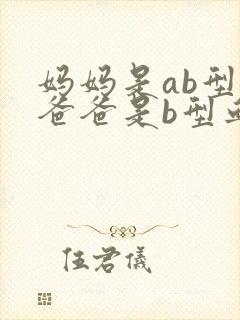 妈妈是ab型
爸爸是b型
伍君儀